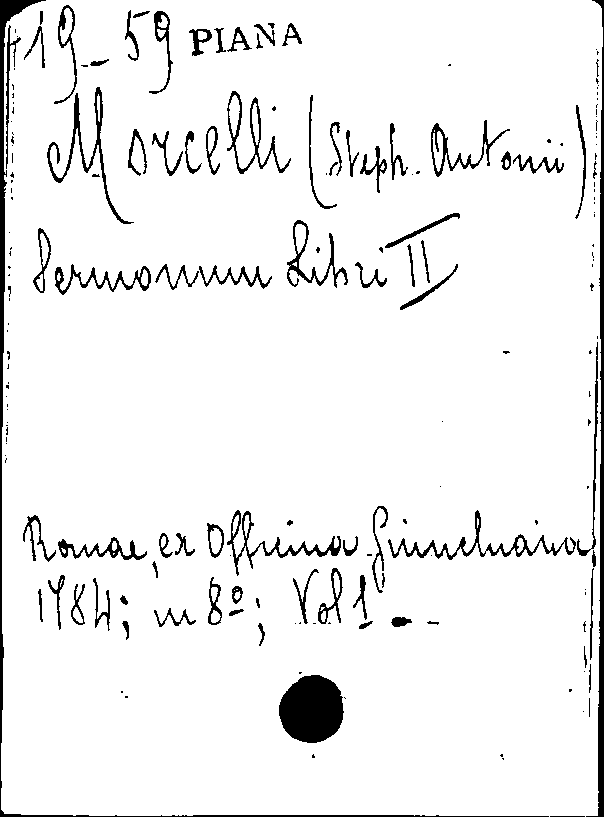 19-59 PIANA
Morcelli (Steph. Antonii)
Sermonum Libri II
Romae, ex Officina Giunchiana
1784; in 8º; Vol 1 --